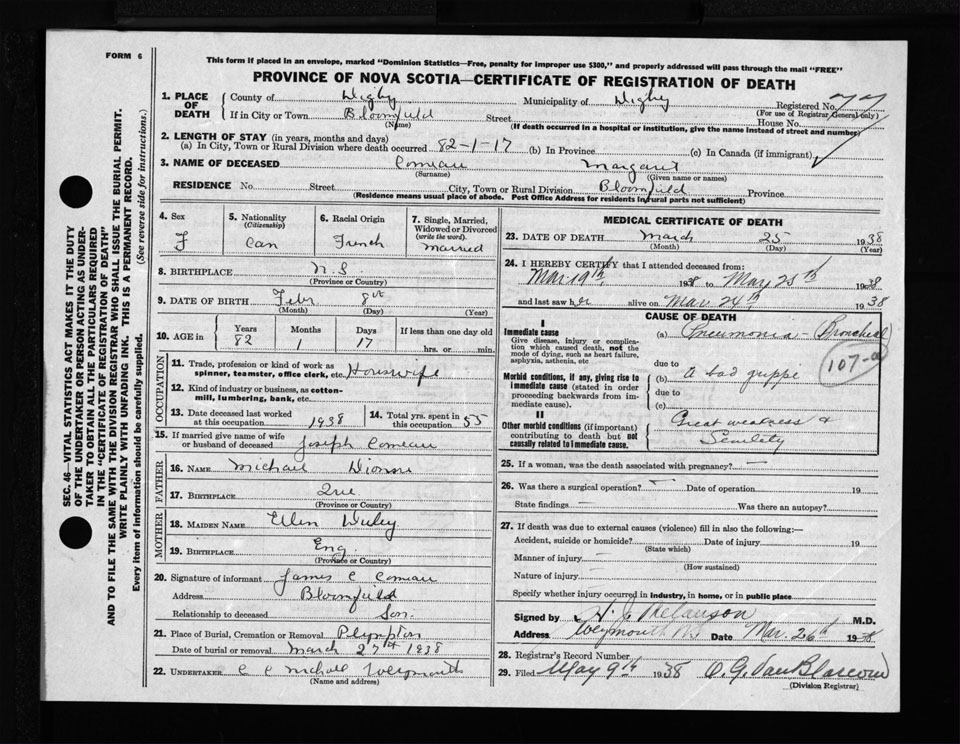 FORM 6
This form if placed in an envelope, marked "Dominion Statistics—Free, penalty for improper use $300," and properly addressed will pass through the mail "FREE"
PROVINCE OF NOVA SCOTIA—CERTIFICATE OF REGISTRATION OF DEATH
1. PLACE OF DEATH County of Digby Municipality of Digby Registered No. 77
(For use of Registrar General only)
If in City or Town Bloomfield Street House No.
(Name) (If death occurred in a hospital or institution, give the name instead of street and number)
2. LENGTH OF STAY (in years, months and days)
(a) In City, Town or Rural Division where death occurred 82-1-17 (b) In Province (c) In Canada (if immigrant)
3. NAME OF DECEASED Comeau Margaret
(Surname) (Given name or names)
RESIDENCE No. Street City, Town or Rural Division Bloomfield Province
(Residence means usual place of abode. Post Office Address for residents in rural parts not sufficient)
4. Sex 5. Nationality 6. Racial Origin 7. Single, Married,
(Citizenship) Widowed or Divorced
(write the word)
F Can French Married
8. BIRTHPLACE N.S
(Province or Country)
9. DATE OF BIRTH Febr 8th
(Month) (Day) (Year)
10. AGE in Years Months Days If less than one day old
82 1 17 hrs. or min.
OCCUPATION
11. Trade, profession or kind of work as
spinner, teamster, office clerk, etc. Housewife
12. Kind of industry or business, as cotton-
mill, lumbering, bank, etc.
13. Date deceased last worked 14. Total yrs. spent in
at this occupation 1938 this occupation 55
15. If married give name of wife
or husband of deceased Joseph Comeau
FATHER
16. NAME Michael
17. BIRTHPLACE Que
(Province or Country)
MOTHER
18. MAIDEN NAME Ellen
19. BIRTHPLACE Eng
(Province or Country)
20. Signature of informant James C Comeau
Address Bloomfield
Relationship to deceased Son.
21. Place of Burial, Cremation or Removal Plympton
Date of burial or removal March 27th 1938
22. UNDERTAKER Weymouth
(Name and address)
MEDICAL CERTIFICATE OF DEATH
23. DATE OF DEATH March 25 1938
(Month) (Day) (Year)
24. I HEREBY CERTIFY that I attended deceased from:
Mar 19th 1938 to May 25th 1938
and last saw her alive on Mar. 24th 1938
CAUSE OF DEATH
I
Immediate cause
Give disease, injury or complica-
tion which caused death, not the
mode of dying, such as heart failure,
asphyxia, asthenia, etc
(a) Pneumonia - Bronchial
due to
107-a
Morbid conditions, if any, giving rise to
immediate cause (stated in order
proceeding backwards from im-
mediate cause).
(b) A bad grippe
due to
(c)
II
Other morbid conditions (if important)
contributing to death but not
causally related to immediate cause.
Great weakness &
Senility
25. If a woman, was the death associated with pregnancy? —
26. Was there a surgical operation? — Date of operation 19
State findings Was there an autopsy?
27. If death was due to external causes (violence) fill in also the following:—
Accident, suicide or homicide? Date of injury 19
(State which)
Manner of injury —
(How sustained)
Nature of injury —
Specify whether injury occurred in industry, in home, or in public place
Signed by M.D.
Address Weymouth NS Date Mar. 26th 1938
28. Registrar's Record Number
29. Filed May 9th 1938 O. G. Van Blarcom
(Division Registrar)
SEC. 46—VITAL STATISTICS ACT MAKES IT THE DUTY
OF THE UNDERTAKER OR PERSON ACTING AS UNDER-
TAKER TO OBTAIN ALL THE PARTICULARS REQUIRED
IN THE "CERTIFICATE OF REGISTRATION OF DEATH"
AND TO FILE THE SAME WITH THE DIVISION REGISTRAR WHO SHALL ISSUE THE BURIAL PERMIT.
WRITE PLAINLY WITH UNFADING INK. THIS IS A PERMANENT RECORD.
Every item of information should be carefully supplied. (See reverse side for instructions.)